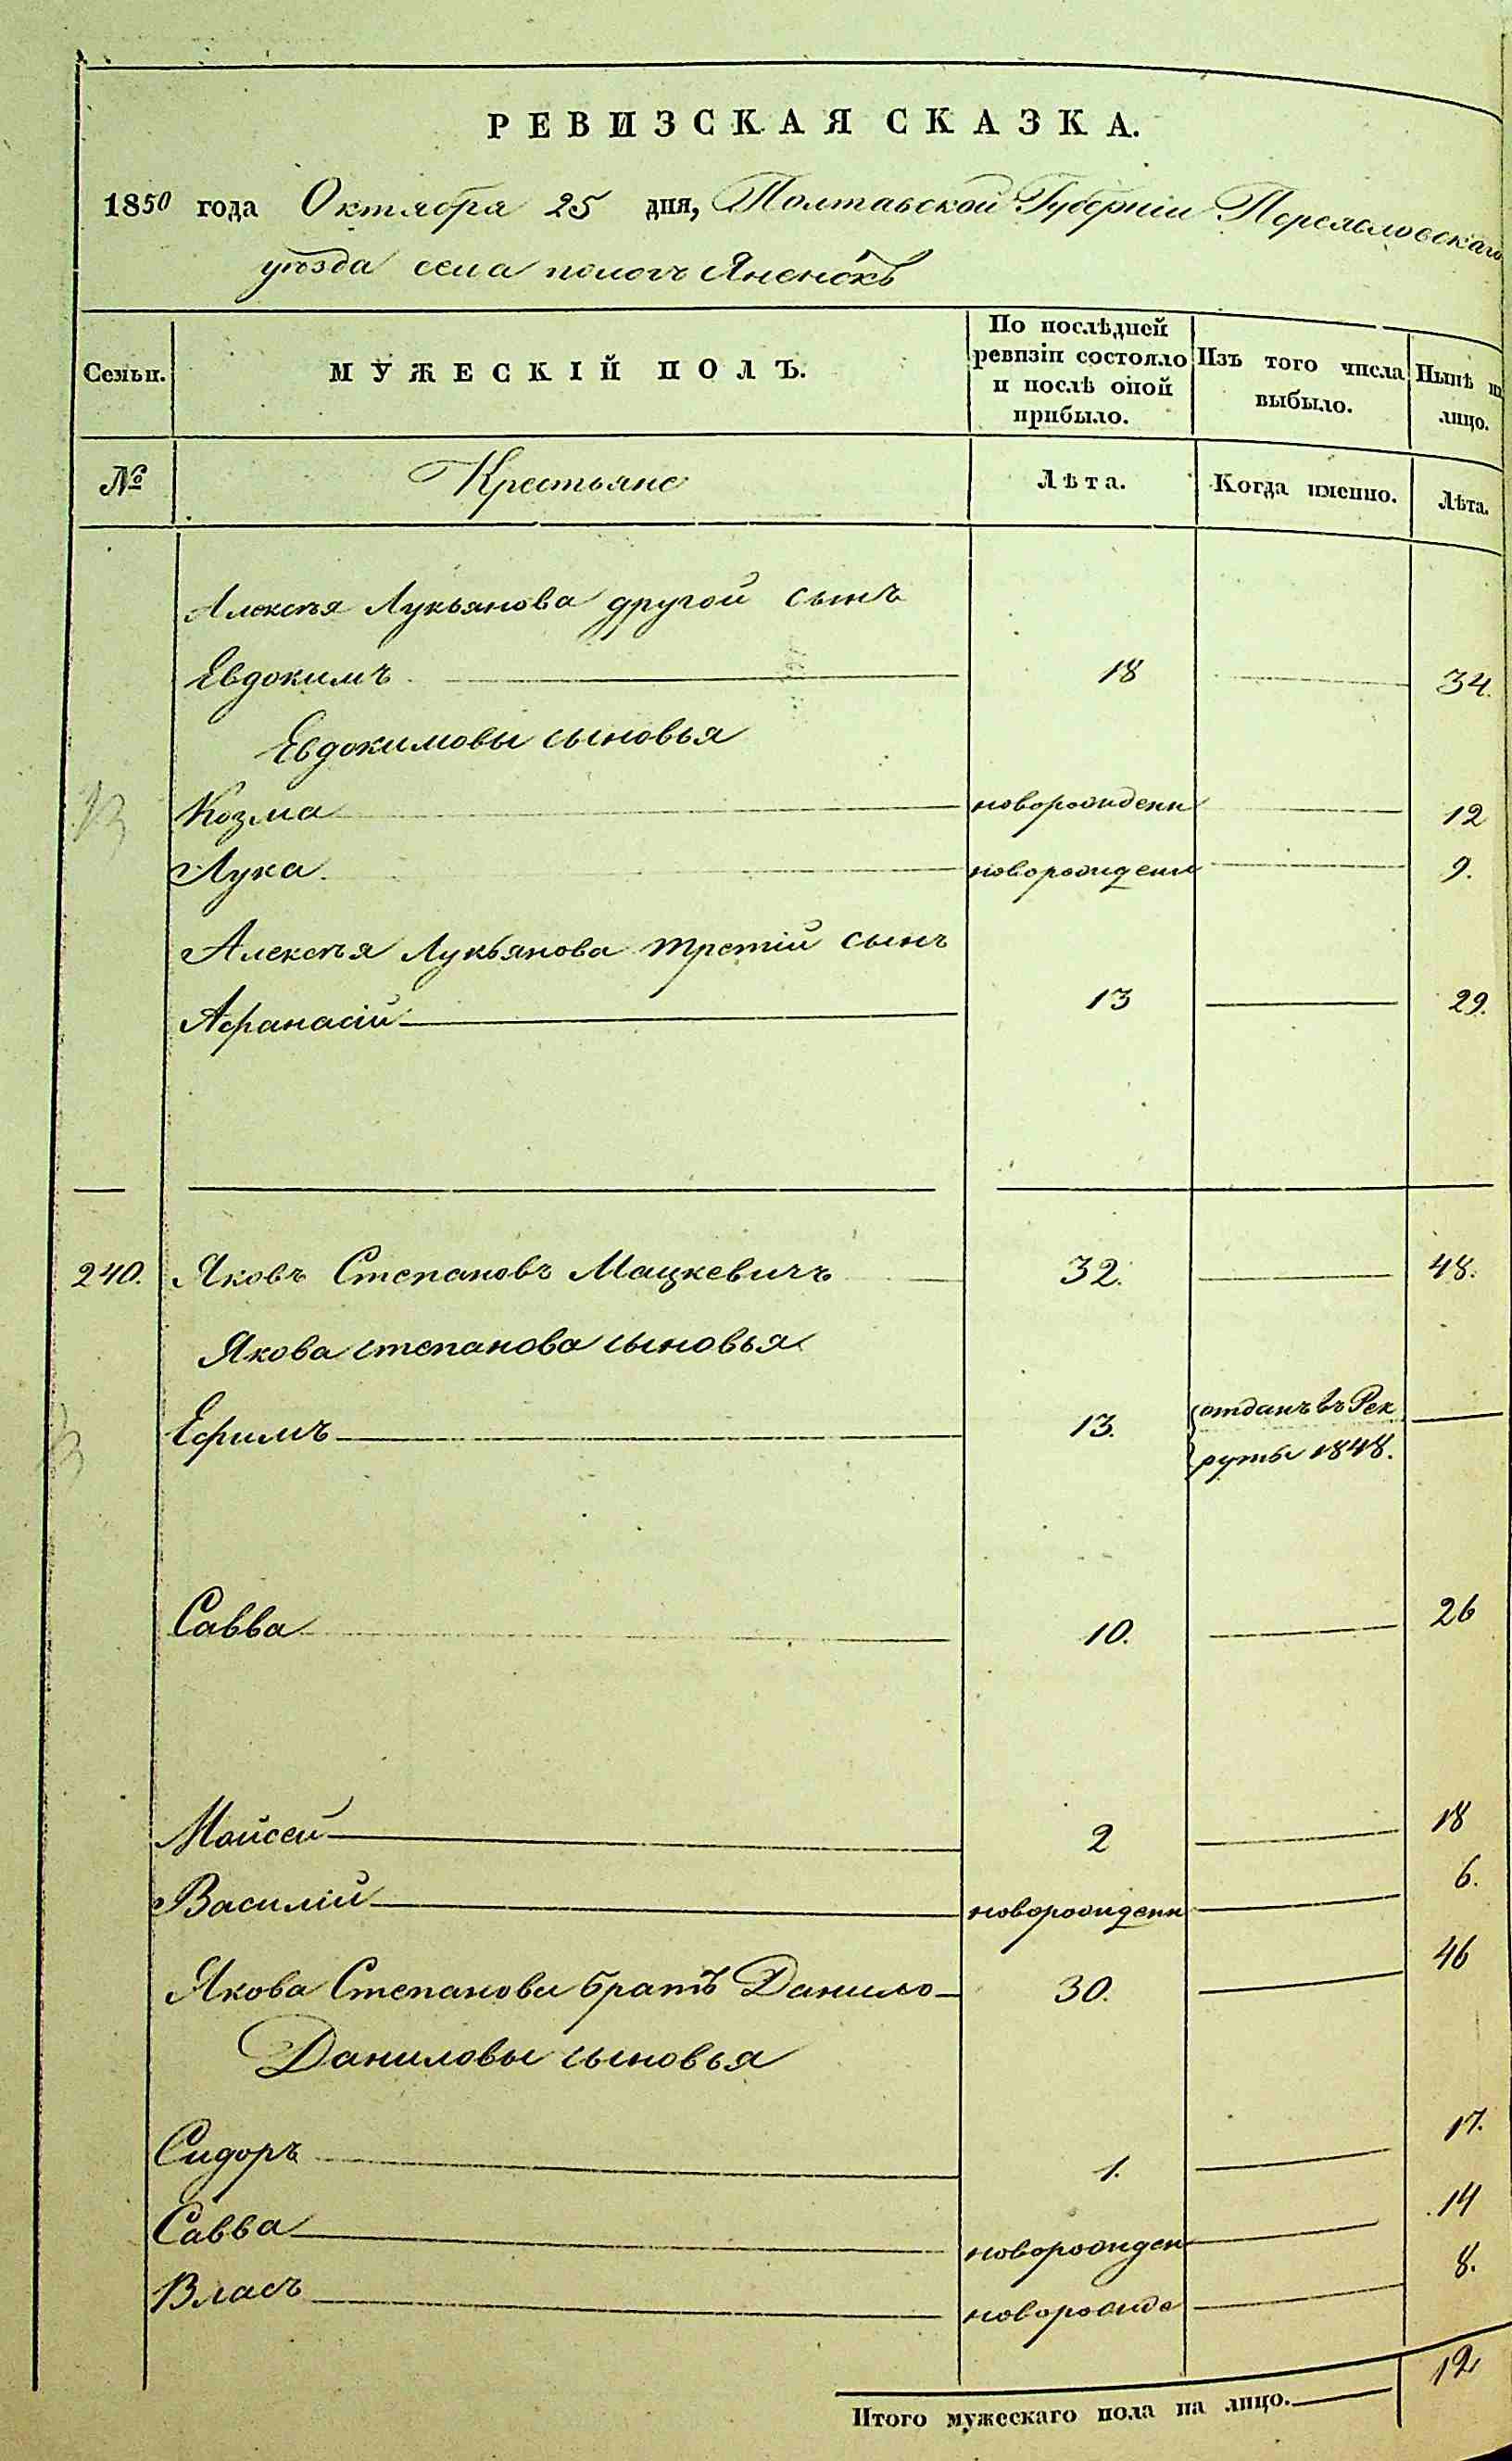 РЕВИЗСКАЯ СКАЗКА.
1850 года Октября 25 дня, Полтавской Губерніи Переяловскаго
уѣзда села Яненокъ
Семьи. МУЖЕСКІЙ ПОЛЪ. По послѣдней ревизіи состояло и послѣ оной прибыло. Изъ того числа выбыло. Нынѣ на лицо.
№ Крестьяне Лѣта. Когда именно. Лѣта.
Алексѣя Лукьянова другой сынъ
Евдокимъ 18 34.
Евдокимовы сыновья
Козма новорожденн 12
Лука новорожденн 9.
Алексѣя Лукьянова третій сынъ
Афанасій 13 29.
240. Яковъ Степановъ Мацкевичъ 32. 48.
Якова степанова сыновья
Ефимъ 13. отданъ въ Рек
руты 1848.
Савва 10. 26
Мойсей 2 18
Василій новорожденн 6.
Якова Степанова братъ Данило 30. 46
Даниловы сыновья
Сидоръ 1. 17.
Савва новорожден 14
Власъ новорожде 8.
Итого мужескаго пола на лицо. 12